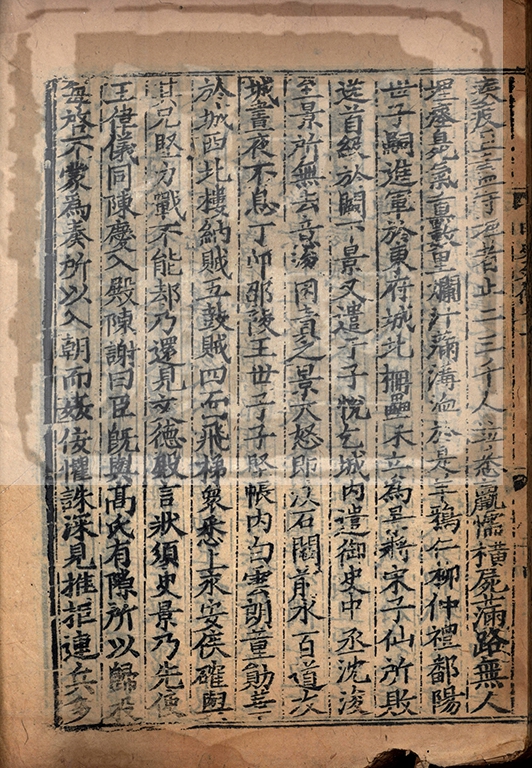 疾疫且盡守埤者止二三千人並悉羸懦橫屍滿路無人
埋瘞臭氣熏數里爛汁滿溝洫於是羊鴉仁柳仲禮鄱陽
世子嗣進軍於東府城北柵壘未立為景將宋子仙所敗
送首級於闕下景又遣于子悅乞城內遣御史中丞沈浚
至景所無去意浚固責之景大怒即決石闕前水百道攻
城晝夜不息丁卯邵陵王世子子堅帳內白雲朗董勛華
於城西北樓納賊五鼓賊四面飛梯衆悉上永安侯確與
其兄堅力戰不能却乃還見文德殿言狀須史景乃先使
王律儀同陳慶入殿陳謝曰臣既與高氏有隙所以歸投
每啓不蒙為奏所以入朝而姦佞懼誅深見推拒連兵多